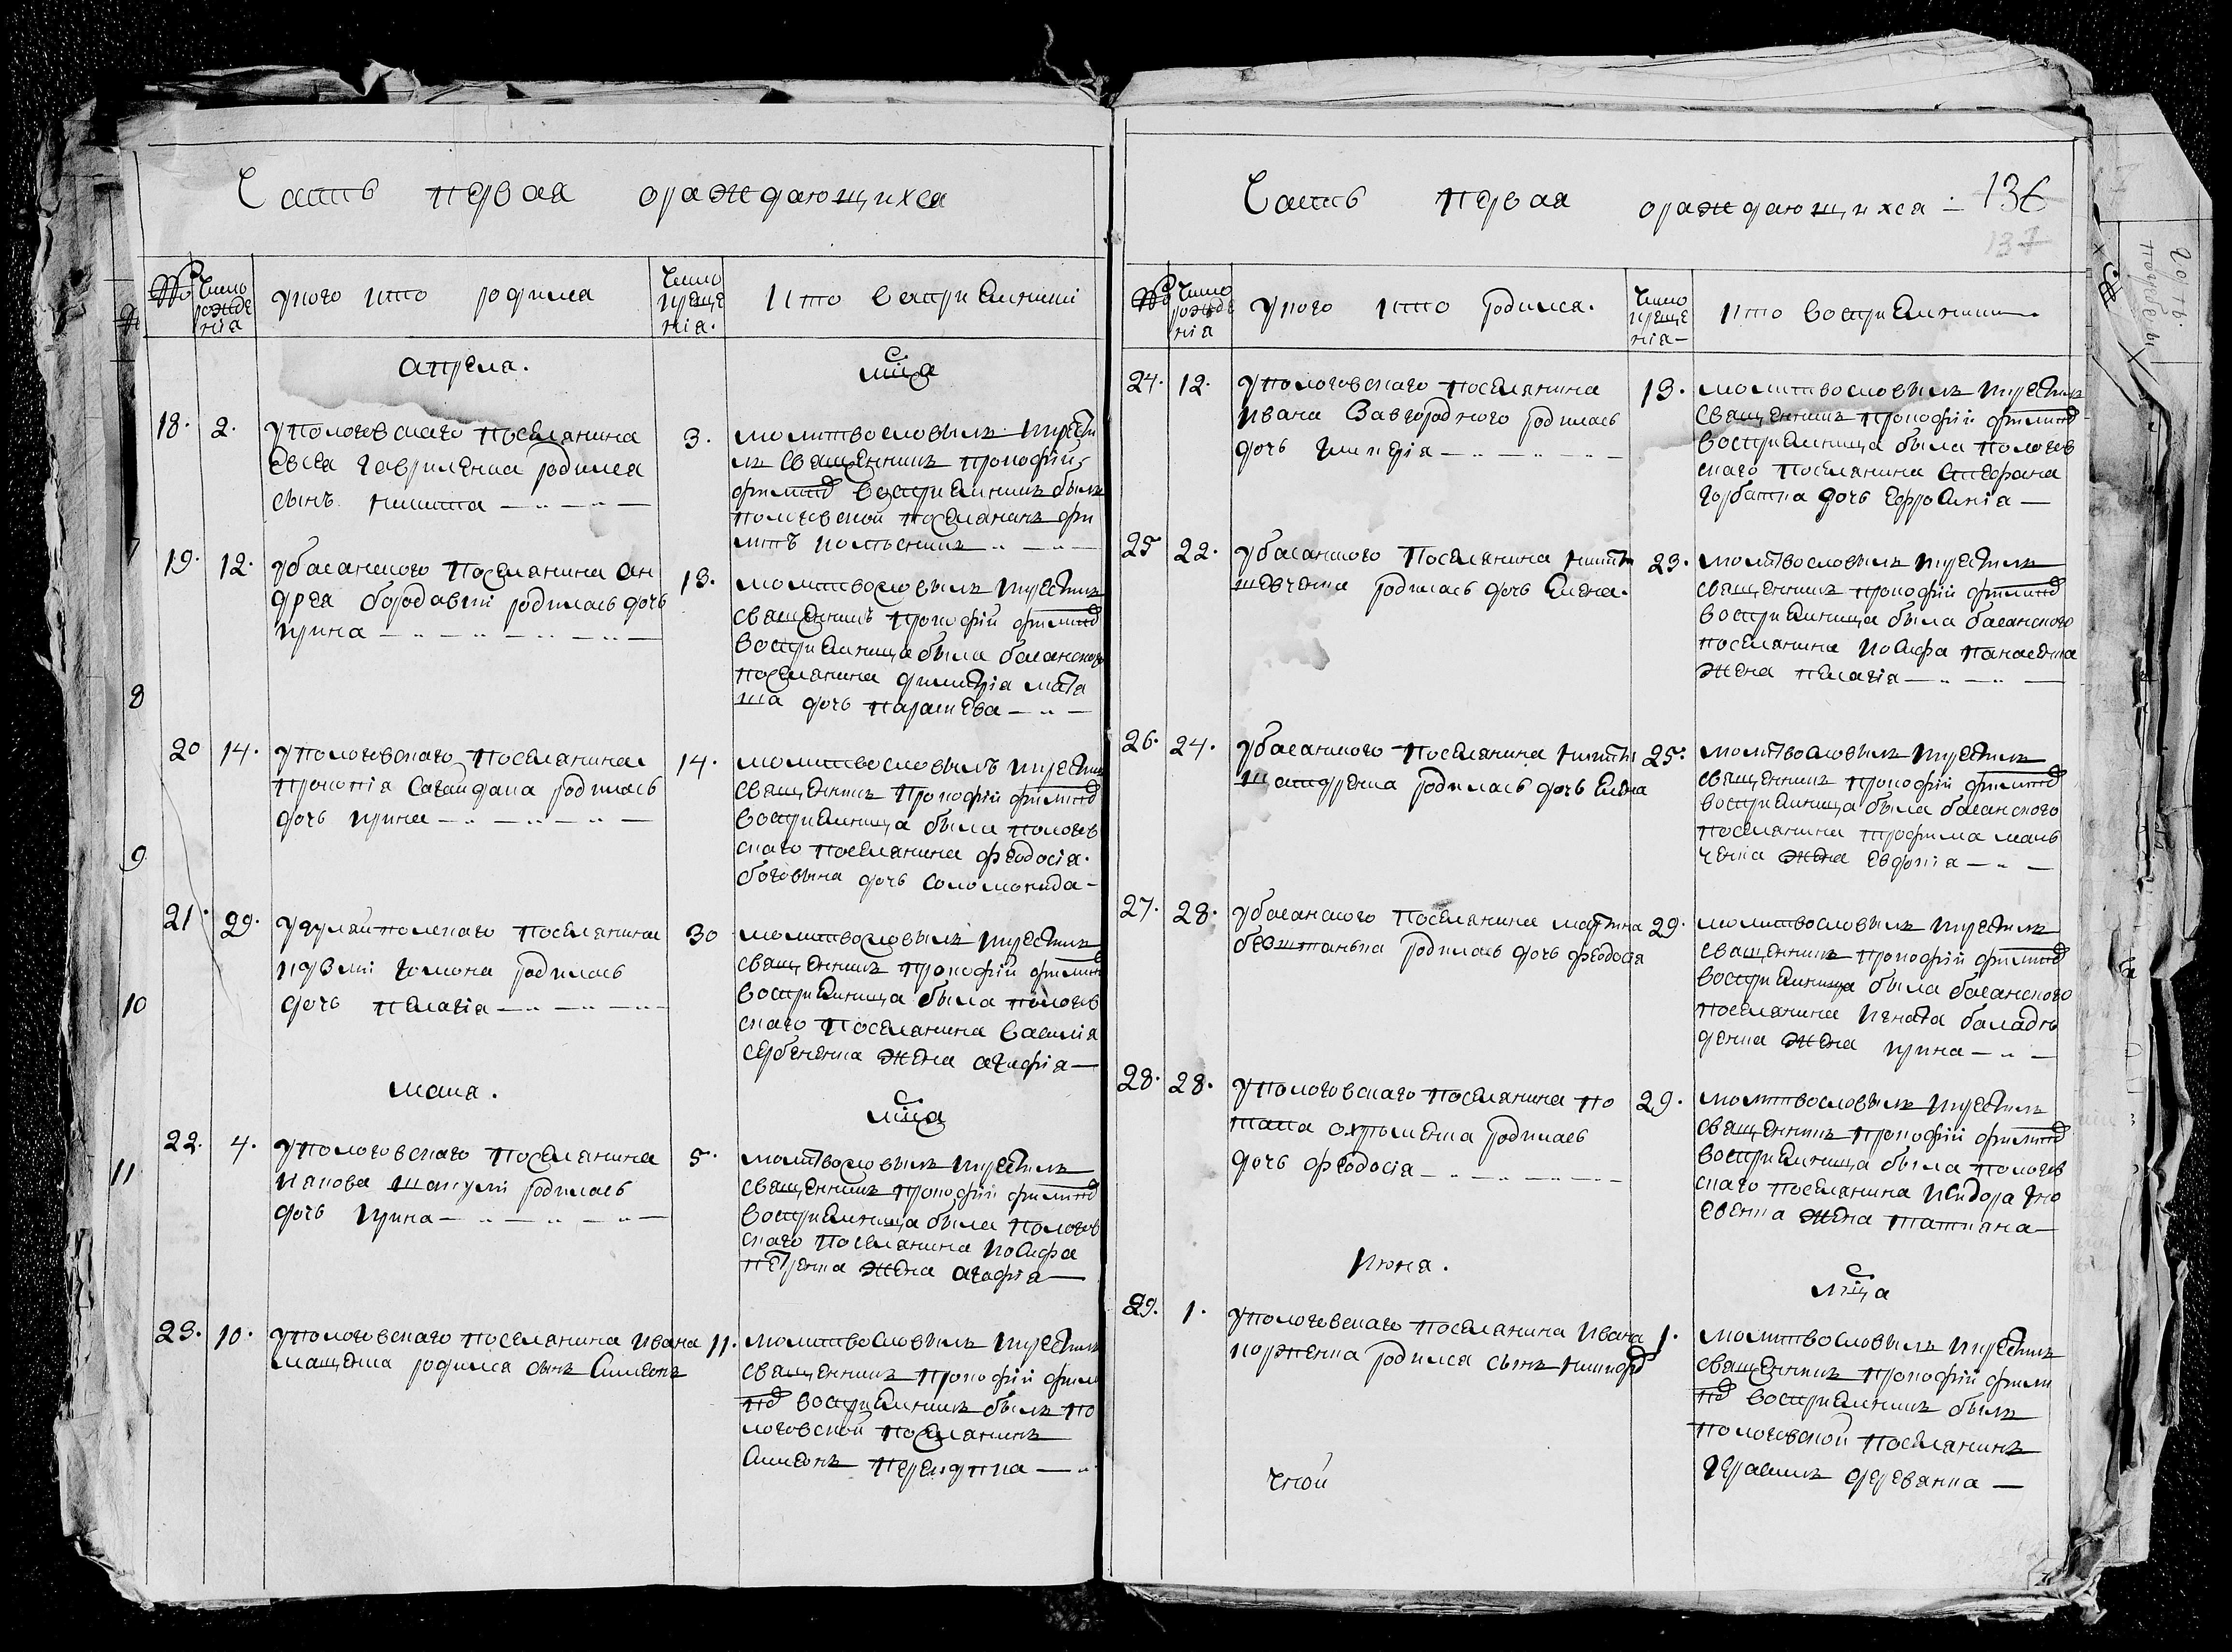 Часть первая ораждающихся
№
Число рождения
Укого кто родился
Число крещения.
Кто восприемники
апреля.
мца
18. 2. Упологовскаго поселянина
Евсея Гавриленка родился
сынъ Никита
3. молитвословилъ икрести
лъ священникъ Прокофий
Филипповъ восприемникъ былъ
пологовской поселянинъ Фи
липъ
19. 12. Убасанского поселянина Ан
дрея Бородавки родилась дочь
Ирина
13. молитвословилъ икрестилъ
священникъ Прокофий Филипповъ
восприемница была басанского
поселянина Димитрія Мата
ша дочь Параскева
20 14. Упологовскаго поселянина
Прокопія Сагайдака родилась
дочь Ирина
14. молитвословилъ икрестилъ
священникъ Прокофий Филипповъ
восприемница была пологов
скаго поселянина Феодосія
Боговына дочь Соломонида
21. 29. Угуляйполскаго поселянина
Кузми Гомона родилась
дочь Пелагія
30 молитвословилъ икрестилъ
священникъ Прокофий Филиповъ
восприемница была пологов
скаго поселянина Василія
Сербененка жена Агафія
маия.
мца
22. 4. Упологовскаго поселянина
Иакова Шакули родилась
дочь Ирина
5. молитвословилъ икрестилъ
священникъ Прокофий Филипповъ
восприемница была пологов
скаго поселянина Иосифа
Петренка жена Агафія
23. 10. Упологовскаго поселянина Ивана
Мащенка родился сынъ Симеонъ
11. молитвословилъ икрестилъ
священникъ Прокофий Филип
повъ восприемникъ былъ по
логовской поселянинъ
Симеонъ
8
9
10
11
Часть первая ораждающихся
136
137
№
Число рожденія
Укого кто родился.
Число крещенія
Кто восприемники
24. 12. Упологовскаго поселянина
Ивана Завгородного родилась
дочь Гликерія
13. молитвословилъ икрестилъ
священникъ Прокофий Филипповъ
восприемница была пологов
скаго поселянина Стефана
Горбатка дочь Ефросинія
25 22. Убасанского поселянина Никиты
Шевченка родилась дочь Елена.
23. молитвословилъ икрестилъ
священникъ Прокофий Филипповъ
восприемница была басанского
поселянина Иосифа Панасенка
жена Пелагія
26. 24. Убасанского поселянина Никиты
родилась дочь Елена
25. молитвословилъ икрестилъ
священникъ Прокофий Филипповъ
восприемница была басанского
поселянина Трофима Мань
ченка жена Евдокія
27. 28. Убасанского поселянина Мартина
Безштанька родилась дочь Феодосія
29. молитвословилъ икрестилъ
священникъ Прокофий Филипповъ
восприемница была басанского
поселянина Игната Баладю
женка жена Ирина
28. 28. Упологовскаго поселянина По
тапа Охрыменка родилась
дочь Феодосія
29. молитвословилъ икрестилъ
священникъ Прокофий Филипповъ
восприемница была пологов
скаго поселянина Исидора Гно
евенка жена Татиана
Июня.
мца
29. 1. Упологовскаго поселянина Ивана
Корженка родился сынъ Никифоръ
1. молитвословилъ икрестилъ
священникъ Прокофий Филип
повъ восприемникъ былъ
пологовской поселянинъ
Герасимъ Деревянка